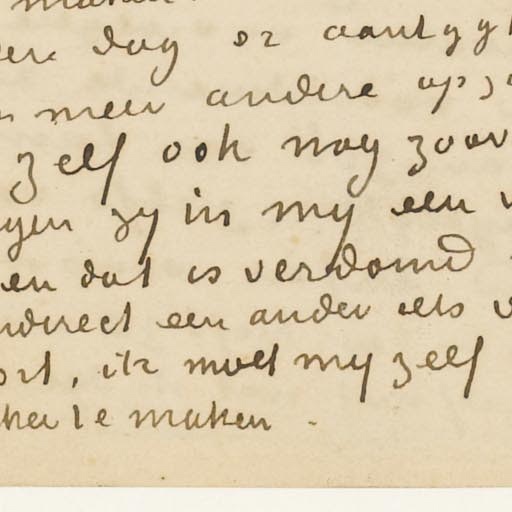 maken
dag or aantyg
meer andere op
zelf ook nog zoo
gen zy in my een v
en dat is verdomd
ndirect een ander iets v
ort, ik moet my zelf
te maken.